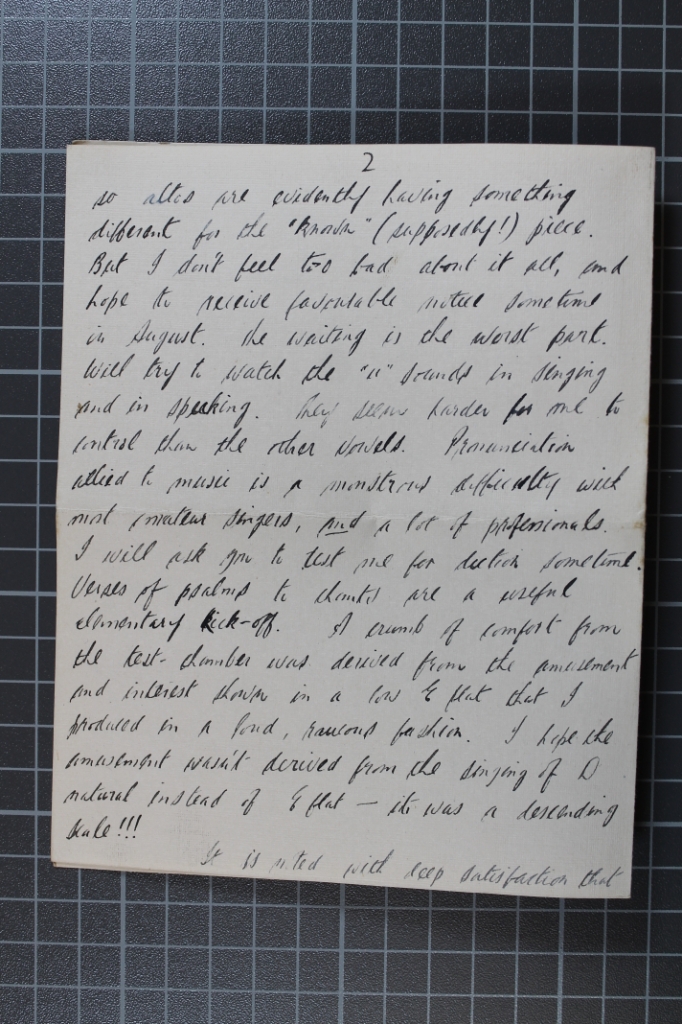 2
so altos are evidently having something
different for the "known" (supposedly!) piece.
But I don't feel too bad about it all, and
hope to receive favourable notice sometime
in August. The waiting is the worst part.
Will try to watch the "u" sounds in singing
and in speaking. They seem harder for me to
control than the other vowels. Pronunciation
allied to music is a monstrous difficulty with
most amateur singers, and a lot of professionals.
I will ask you to test me for diction sometime.
Verses of psalms to chants are a useful
elementary kick-off. A crumb of comfort from
the test-chamber was derived from the amusement
and interest shown in a low E flat that I
produced in a loud, raucous fashion. I hope the
amusement wasn't derived from the singing of D
natural instead of E flat — it was a descending
scale!!!
It is noted with deep satisfaction that